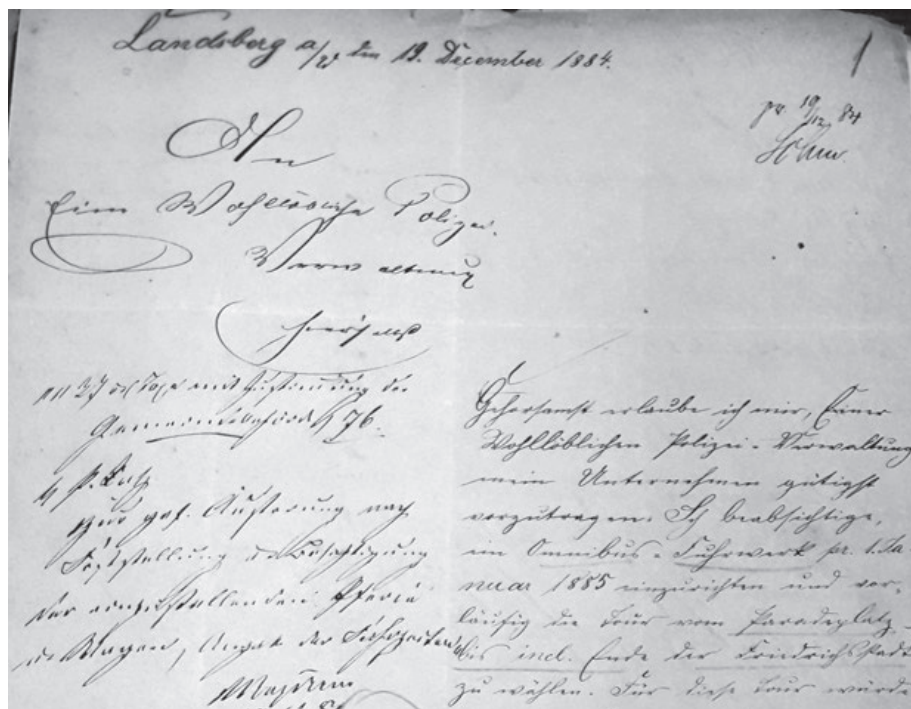 Landsberg a/W den 19. December 1884.
1
pr. 19/12. 84
An
Eine Wohllöbliche Polizei-
Verwaltung
hierselbst
mit Zustimmung der
Gemeindebehörde § 76.
zur gef. Äußerung nach
Feststellung der
der einzustellenden Pferde
u. Wagen, der
Gehorsamst erlaube ich mir, Einer
Wohllöblichen Polizei-Verwaltung
mein Unternehmen gütigst
vorzutragen. Ich beabsichtige,
ein Omnibus-Fuhrwerk pr. 1. Ja-
nuar 1885 einzurichten und vor-
läufig die Tour vom Paradeplatz
bis incl. Ende der Friedrichstadt
zu wählen. Für diese Tour würde